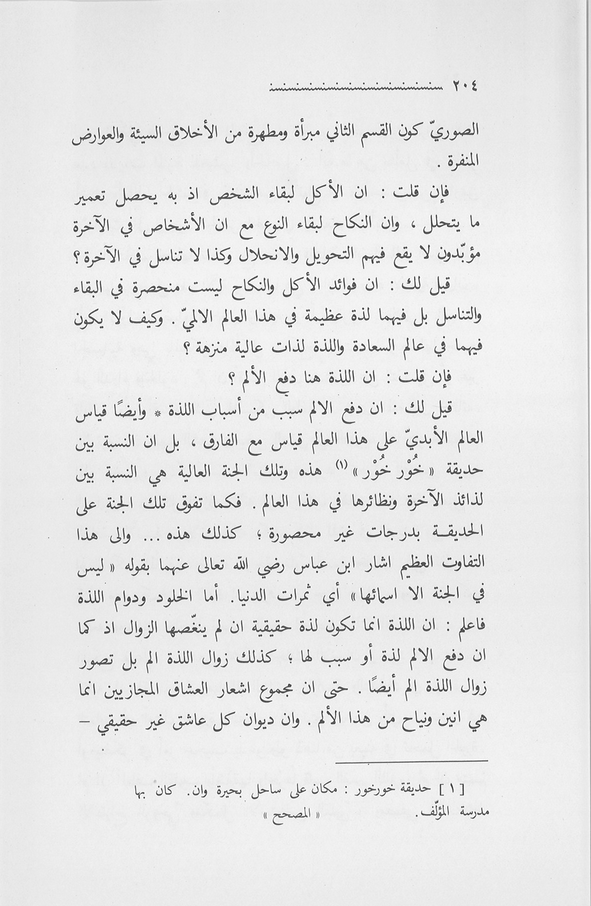 ٢٠٤
الصوريّ كون القسم الثاني مبرأة ومطهرة من الأخلاق السيئة والعوارض
المنفرة .
فإن قلت : ان الأكل لبقاء الشخص اذ به يحصل تعمير
ما يتحلل ، وان النكاح لبقاء النوع مع ان الأشخاص في الآخرة
مؤبّدون لا يقع فيهم التحويل والانحلال وكذا لا تناسل في الآخرة ؟
قيل لك : ان فوائد الأكل والنكاح ليست منحصرة في البقاء
والتناسل بل فيهما لذة عظيمة في هذا العالم الالميّ . وكيف لا يكون
فيهما في عالم السعادة واللذة لذات عالية منزهة ؟
فإن قلت : ان اللذة هنا دفع الألم ؟
قيل لك : ان دفع الالم سبب من أسباب اللذة * وأيضًا قياس
العالم الأبديّ على هذا العالم قياس مع الفارق ، بل ان النسبة بين
حديقة « خُوْر خُوْر » (١) هذه وتلك الجنة العالية هي النسبة بين
لذائذ الآخرة ونظائرها في هذا العالم . فكما تفوق تلك الجنة على
الحديقة بدرجات غير محصورة ؛ كذلك هذه ... والى هذا
التفاوت العظيم اشار ابن عباس رضي الله تعالى عنهما بقوله « ليس
في الجنة الا اسمائها » أي ثمرات الدنيا. أما الخلود ودوام اللذة
فاعلم : ان اللذة انما تكون لذة حقيقية ان لم ينغّصها الزوال اذ كما
ان دفع الالم لذة أو سبب لها ؛ كذلك زوال اللذة الم بل تصور
زوال اللذة الم أيضًا . حتى ان مجموع اشعار العشاق المجازيين انما
هي انين ونياح من هذا الألم . وان ديوان كل عاشق غير حقيقي –
[ ١ ] حديقة خورخور : مكان على ساحل بحيرة وان. كان بها
مدرسة المؤلّف. « المصحح »